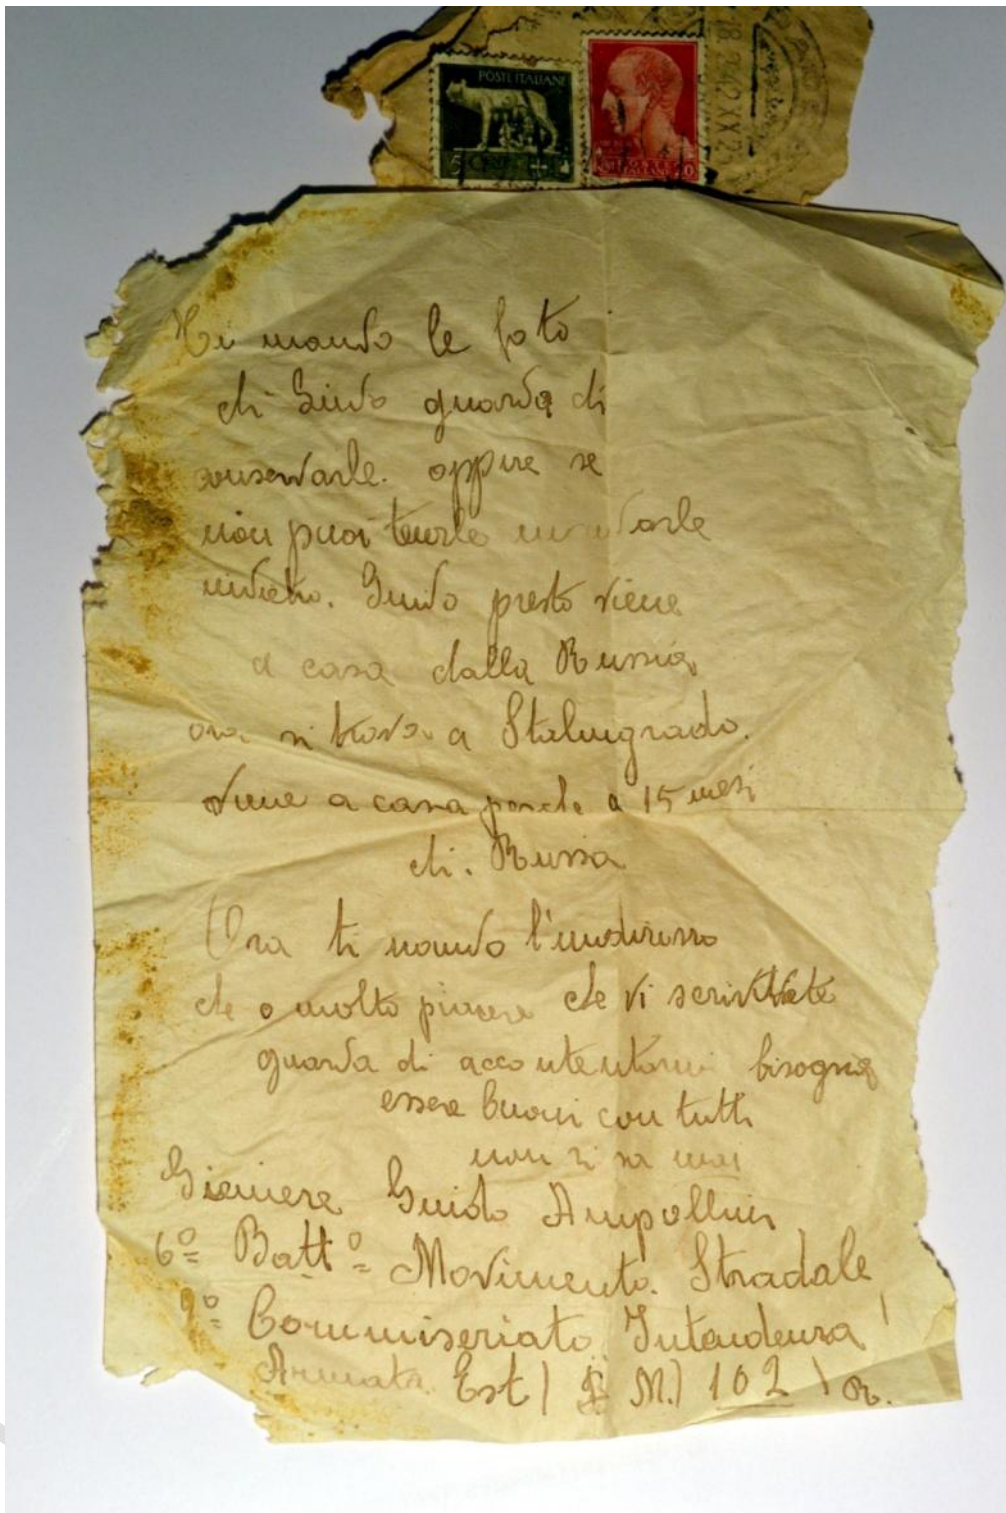 POSTE ITALIANE
18.9.42 XX 2
Ti mando le foto
di Guido guarda di
conservarle. oppure se
non puoi tenerle mandarle
indietro. Guido presto viene
a casa dalla Russia
ora si trova a Stalingrado.
viene a casa perche a 15 mesi
di. Russia
Ora ti mando l'indirizzo
che o molto piacere che vi scrivete
guarda di accontentarmi bisogna
essere buoni con tutti
non si sa mai
Gieniere Guido Ampollini
6º Battº Movimento. Stradale
9º Commiseriato Intendenza
Armata Est / P. M.) 102 \ R.